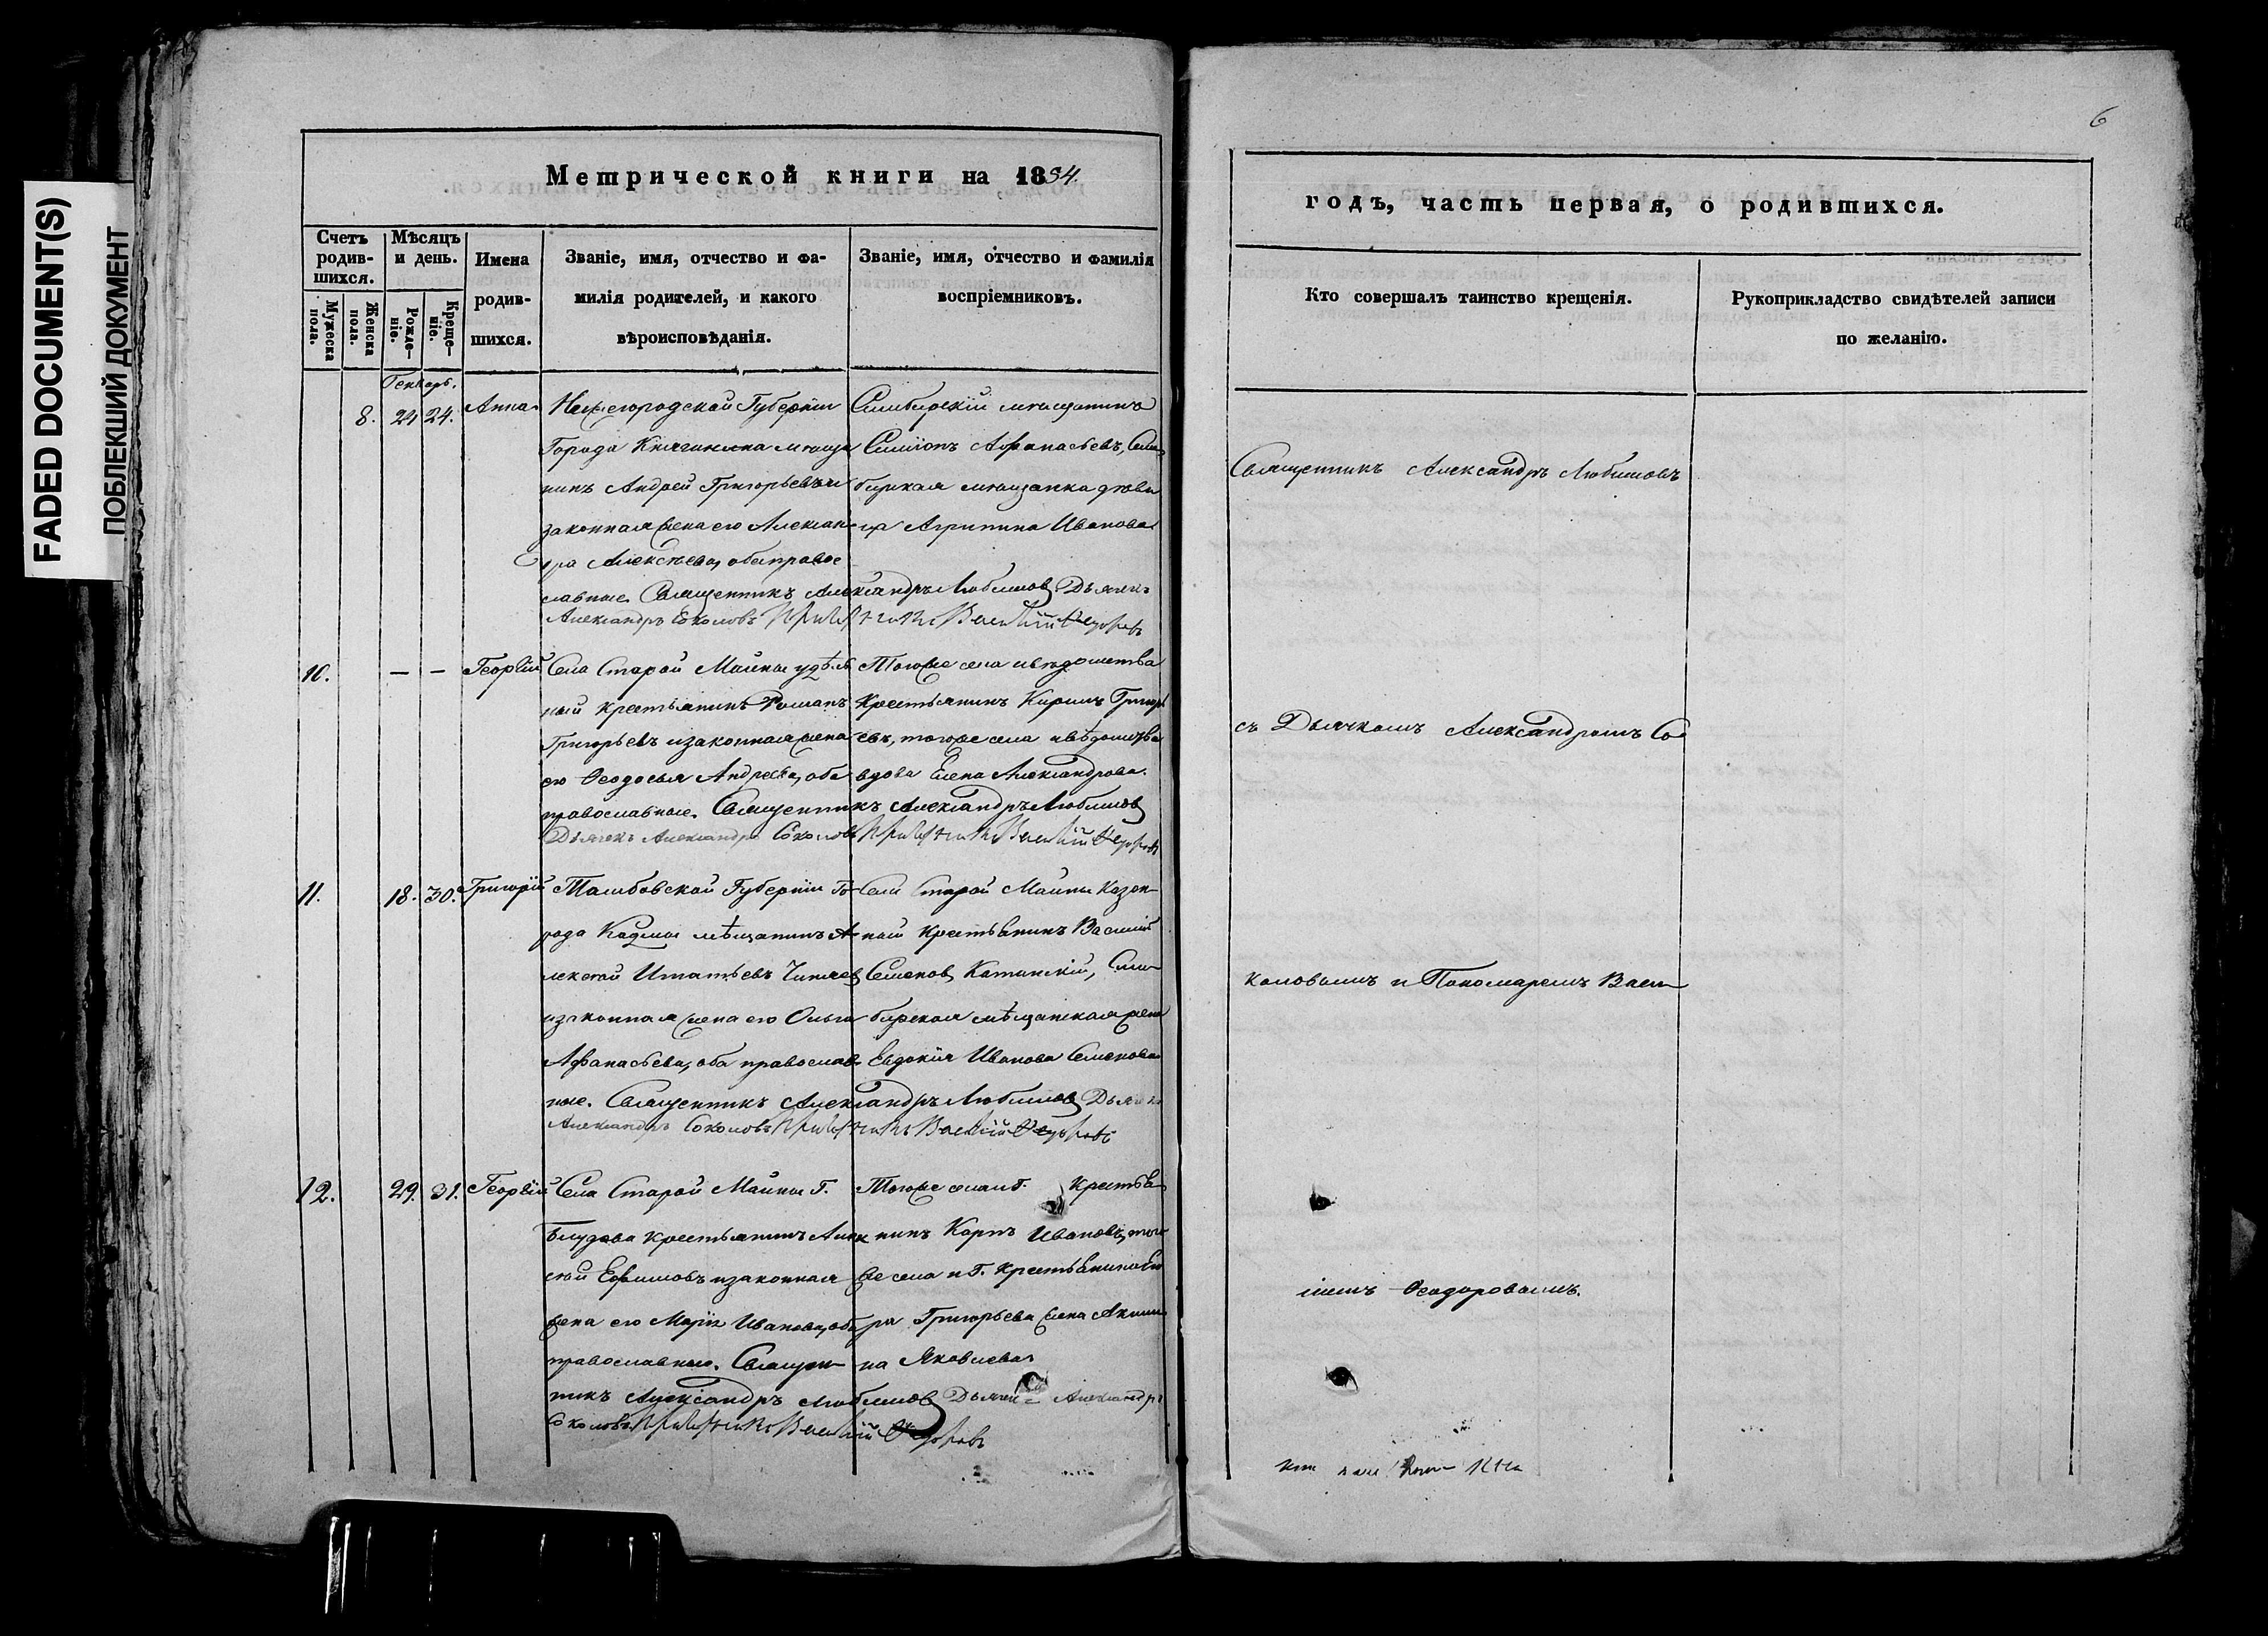 FADED DOCUMENT(S)
ПОБЛЕКШИЙ ДОКУМЕНТ
6
Метрической книги на 1834.
годъ, часть первая, о родившихся.
Счетъ родив-шихся.
Мужеска пола.
Женска пола.
Мѣсяцъ и день.
Рожде-ніе.
Креще-ніе.
Имена родив-шихся.
Званіе, имя, отчество и фа-
милія родителей, и какого
вѣроисповѣданія.
Званіе, имя, отчество и фамилія
воспріемниковъ.
Кто совершалъ таинство крещенія.
Рукоприкладство свидѣтелей записи
по желанію.
Генварь.
8. 24. Анна
Нижегородской Губерніи
Города Княгинина мѣща
нинъ Андрей Григорьевъ и
законная жена его Алексан
дра Алексѣева, оба правос
лавные. Священникъ Александръ Любимовъ Дьячекъ
Александръ Соколовъ Василій Федоровъ
Симбирскій мѣщанинъ
Симіонъ Афанасьевъ, Сим
бирская мѣщанка дѣви
ца Агрипина Иванова
10. — — Георгій
Села Старой Майны удѣль
ный крестьянинъ Романъ
Григорьевъ и законная жена
его Ѳеодосья Андреева, оба
православные. Священникъ Александръ Любимовъ
Дьячекъ Александръ Соколовъ Василій Федоровъ
Тогоже села и вѣдомства
Крестьянинъ Кирилъ Григорь
евъ, тогоже села и вѣдомства
вдова Елена Александрова.
11. 18. 30. Григорій
Тамбовской Губерніи Го-
рода Кадмы мѣщанинъ А-
лексѣй Игнатьевъ
и законная жена его Ольга
Афанасьева, оба православ
ные. Священникъ Александръ Любимовъ Дьячекъ
Александръ Соколовъ Василій Федоровъ
Села Старой Майны Казен-
ный крестьянинъ Василій
Семеновъ Сим-
бирская мѣщанская жена
Евдокія Иванова Семенова
12. 29. 31. Георгій
Села Старой Майны Г.
Блудова крестьянинъ Алек
сѣй Ефимовъ и законная
жена его Марія Иванова, оба
православные. Священ-
никъ Александръ Любимовъ Дьячекъ Александръ
Соколовъ Василій Федоровъ
Тогоже села и Г. Крестья
нинъ Карпъ Ивановъ, того
же села и Г. Крестьянина
Григорьева жена Акили
на Яковлева
Священникъ Александръ Любимовъ
съ Дьячкомъ Александромъ Со
коловымъ и Пономаремъ Васи
ліемъ Ѳеодоровымъ.